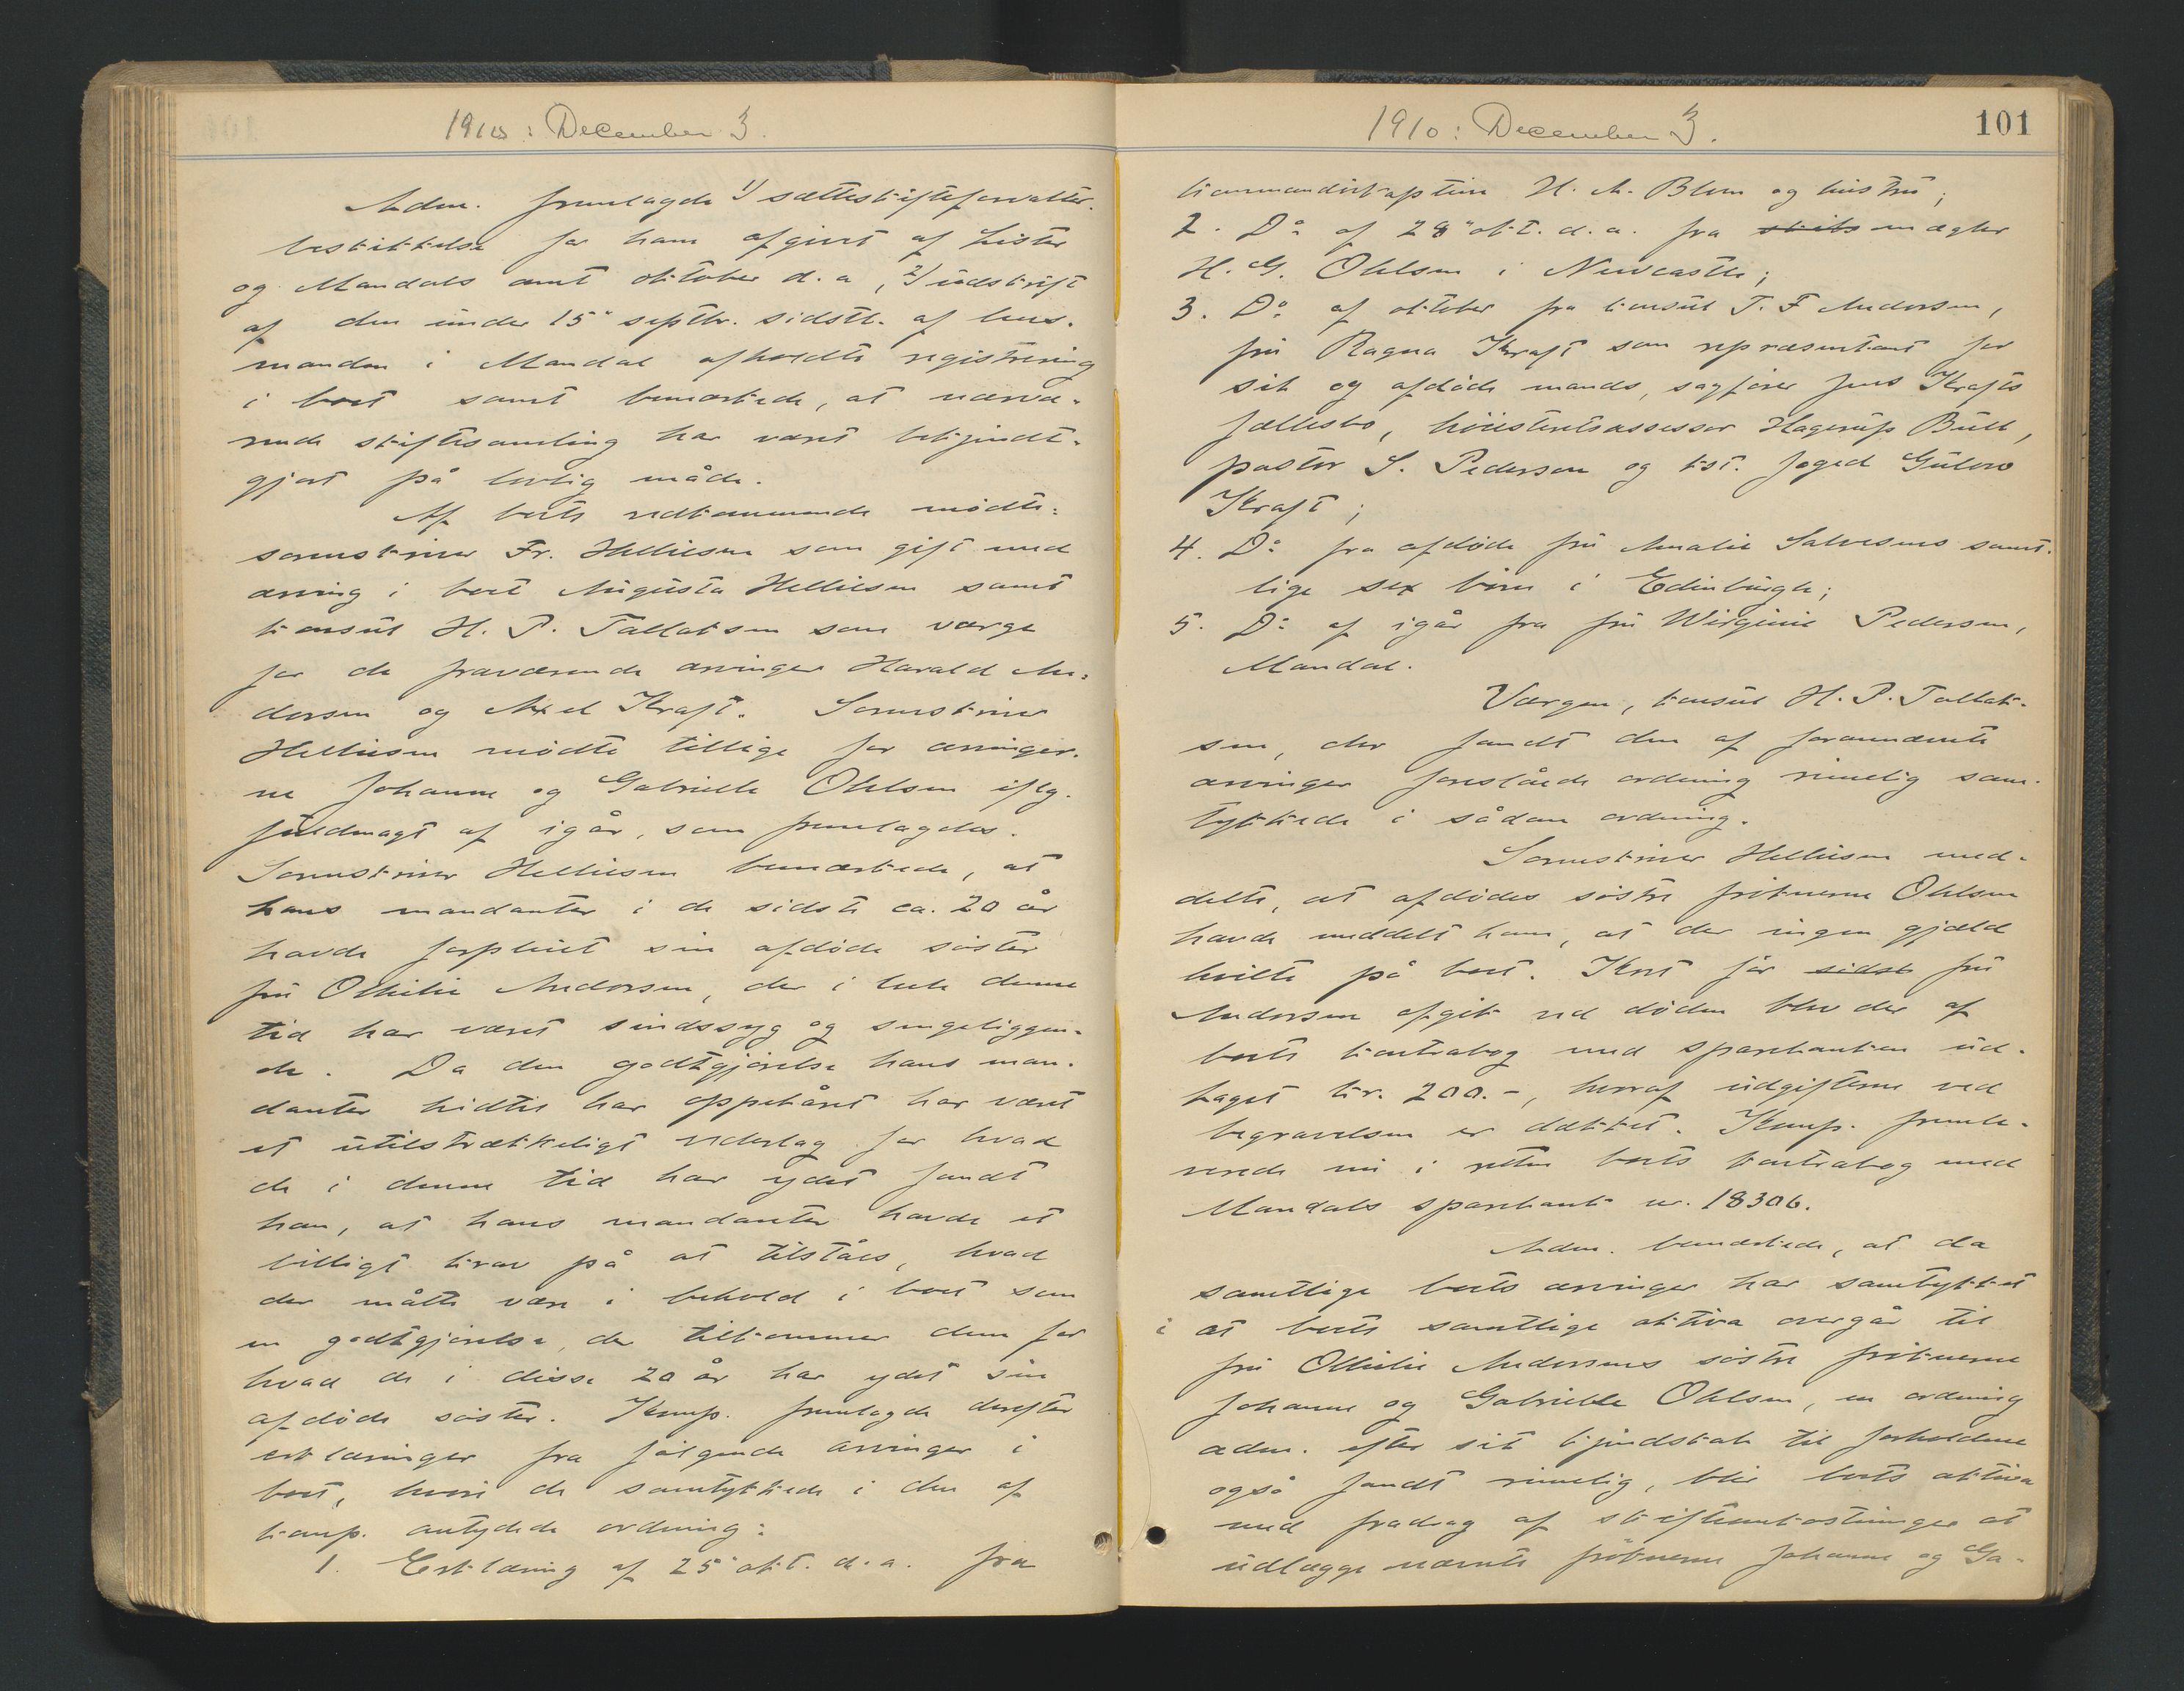 1910: December 3.
Adm. fremlagde 1) sætteskifteforvalter-
beskikkelse for ham afgivet af Lister
og Mandals amt oktober d.a., 2) udskrift
af den under 15" septbr. sidstl. af lens-
manden i Mandal afholdte registrering
i boet samt bemærkede, at nærvæ-
rende skiftesamling har været bekjendt-
gjort på lovlig måde.
Af boets vedkommende mødte:
sorenskriver Fr. Helliesen som gift med
arving i boet Augusta Helliesen samt
konsul H. P. Tallaksen som værge
for de fraværende arvinger Harald An-
dersen og Axel Kraft. Sorenskriver
Helliesen mødte tillige for arvinger-
ne Johanne og Gabrielle Ohlsen iflg.
fuldmagt af igår, som fremlagdes.
Sorenskriver Helliesen bemærkede, at
hans mandanter i de sidste ca. 20 år
havde forpleiet sin afdøde søster
fru Othilie Andersen, der i hele denne
tid har været sindssyg og sengeliggen-
de. Da den godtgjørelse hans man-
danter hidtil har oppebåret har været
et utilstrækkeligt vederlag for hvad
de i denne tid har ydet fandt
han, at hans mandanter havde et
billigt krav på at tilståes, hvad
der måtte være i behold i boet som
en godtgjørelse, der tilkommer dem for
hvad de i disse 20 år har ydet sin
afdøde søster. Komp. fremlagde derefter
erklæringer fra følgende arvinger i
boet, hvori de samtykkede i den af
komp. antydede ordning:
1. Erklæring af 25" okt. d.a. fra
1910: December 3.
101
kommandørkaptein H. A. Blom og hustru;
2. Do af 28" okt. d.a. fra skibsmægler
H. G. Ohlsen i Newcastle;
3. Do af oktober fra konsul T. F Andersen,
fru Ragna Kraft som repræsentant for
sit og afdøde mands, sagfører Jens Krafts
fællesbo, høiesteretsassessor Hagerup Bull,
pastor S. Pedersen og kst. foged Gulow
Kraft;
4. Do fra afdøde fru Amalie Salvesens samt-
lige sex børn i Edinburgh;
5. Do af igår fra fru Wirginie Pedersen,
Mandal.
Værgen, konsul H. P. Tallak-
sen, der fandt den af forannævnte
arvinger foreslåede ordning rimelig sam-
tykkede i sådan ordning.
Sorenskriver Helliesen med-
delte, at afdødes søstre frøknerne Ohlsen
havde meddelt ham, at der ingen gjæld
hvilte på boet. Kort før sidst fru
Andersen afgik ved døden blev der af
boets kontrabog med sparebanken ud-
taget kr. 200.-, hvoraf udgifterne ved
begravelsen er dækket. Komp. fremle-
verede nu i retten boets kontrabog med
Mandals sparebank nr. 18306.
Adm. bemærkede, at da
samtlige boets arvinger har samtykket
i at boets samtlige aktiva overgår til
fru Othilie Andersens søstre frøknerne
Johanne og Gabrielle Ohlsen, en ordning
adm. efter sit kjendskab til forholdene
også fandt rimelig, blir boets aktiva
med fradrag af skifteomkostninger at
udlægge nævnte frøknerne Johanne og Ga-